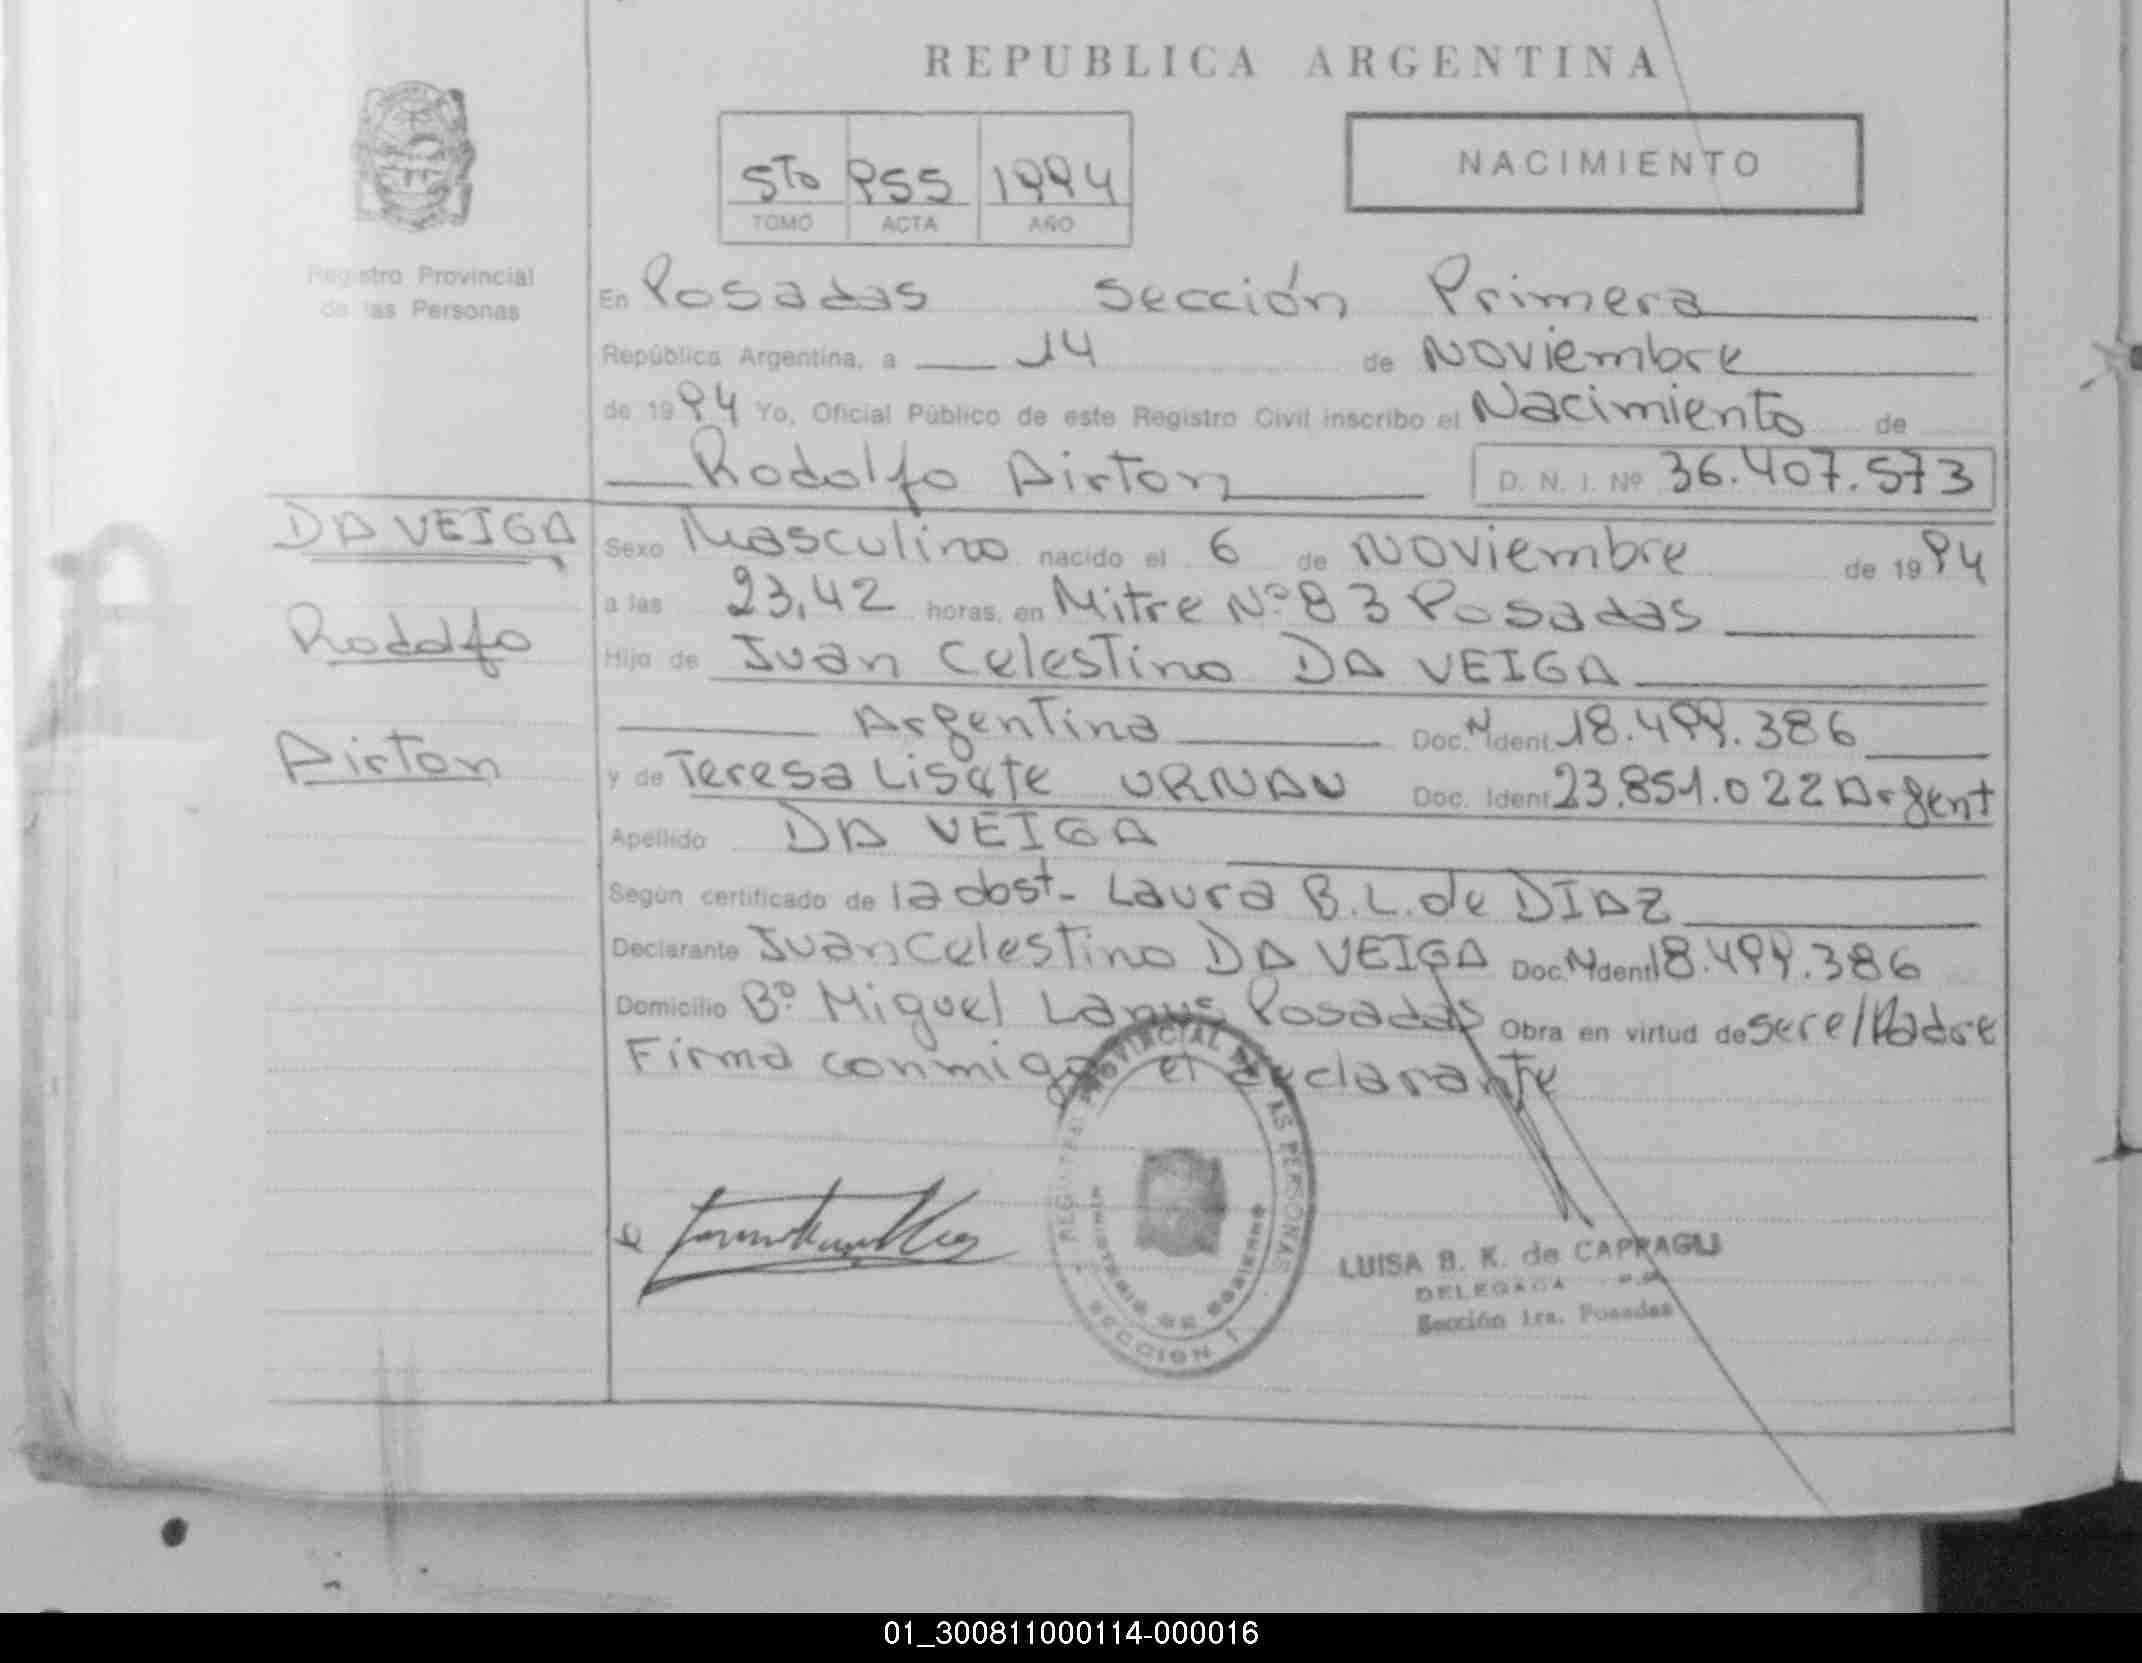 REPUBLICA ARGENTINA
NACIMIENTO
5to 955 1994
TOMO ACTA AÑO
Registro Provincial
de las Personas
En Posadas Sección Primera
República Argentina, a 14 de Noviembre
de 1994 Yo, Oficial Público de este Registro Civil inscribo el Nacimiento de
Rodolfo Airton D. N. I. Nº 36.407.573
DA VEIGA
Rodolfo
Airton
Sexo Masculino nacido el 6 de Noviembre de 1994
a las 23,42 horas, en Mitre Nº 83 Posadas
Hijo de Juan Celestino DA VEIGA
Argentina Doc. N Ident. 18.499.386
y de Teresa Lisete URNAU Doc. Ident 23.851.022 Argent
Apellido DA VEIGA
Según certificado de la obst- Laura B.L. de DIAZ
Declarante Juan Celestino DA VEIGA Doc. N Ident 18.499.386
Domicilio Bº Miguel Lanus Posadas Obra en virtud de ser el Padre
Firma conmigo el declarante
REGISTRO PROVINCIAL DE LAS PERSONAS
MINISTERIO DE GOBIERNO
SECCION 1
LUISA B. K. de CAPRAGLI
DELEGADA
Sección 1ra. Posadas
01_300811000114-000016